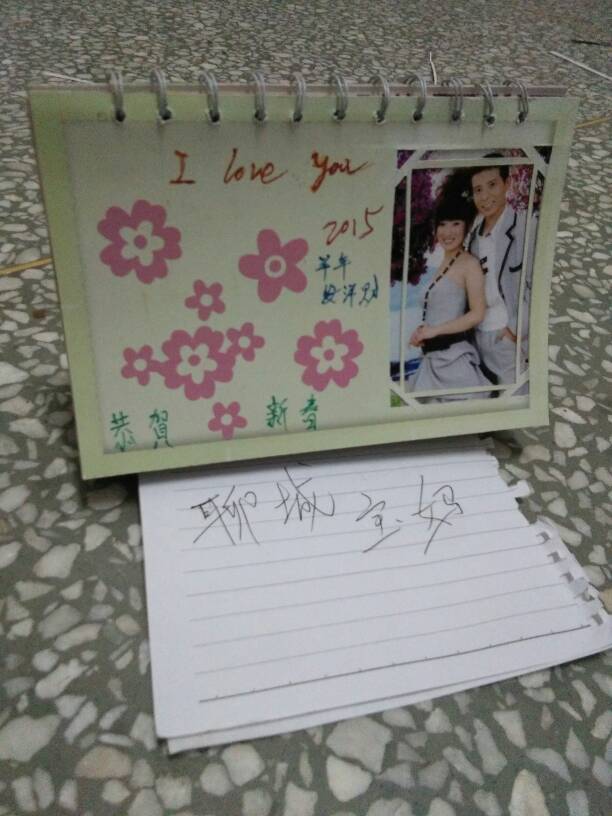 I love you
2015
羊年
恭賀 新春
聊城宝妈